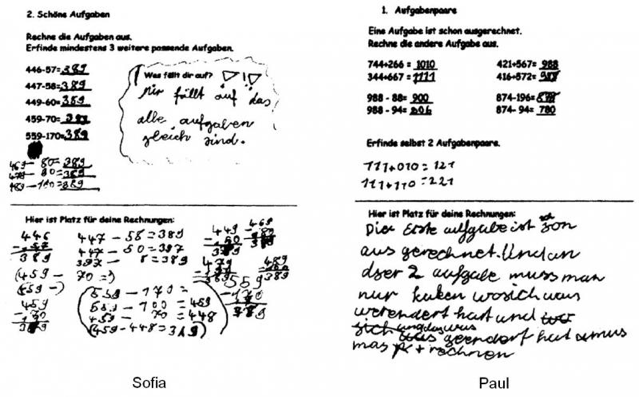 2. Schöne Aufgaben
Rechne die Aufgaben aus.
Erfinde mindestens 3 weitere passende Aufgaben.
446-57=389
447-58=389
449-60=389
459-70=389
559-170=389
469- 80=389
479- 90=389
489-100=389
Was fällt dir auf?
Mir fällt auf das
alle aufgaben
gleich sind.
Hier ist Platz für deine Rechnungen:
446
389
447-58=389
447-50=397
397- 8=389
(459-
70=)
(459-)
459
559-170=
559-100=459
459- 70=448
(459-448=389)
449
469
479
489
559
-170
389
Sofia
1. Aufgabenpaare
Eine Aufgabe ist schon ausgerechnet.
Rechne die andere Aufgabe aus.
744+266= 1010
344+667= 1111
421+567= 988
416+572=
988 - 88= 900
988 - 94=
874-196=
874- 94= 780
Erfinde selbst 2 Aufgabenpaare.
111+010=121
111+110=221
Hier ist Platz für deine Rechnungen:
Die Erste aufgabe ist son
aus gerechnet. Und an
dser 2 aufgabe muss man
nur kuken wo sich was
verendert hat und
sich was geendert hat
mas + rechnen
Paul